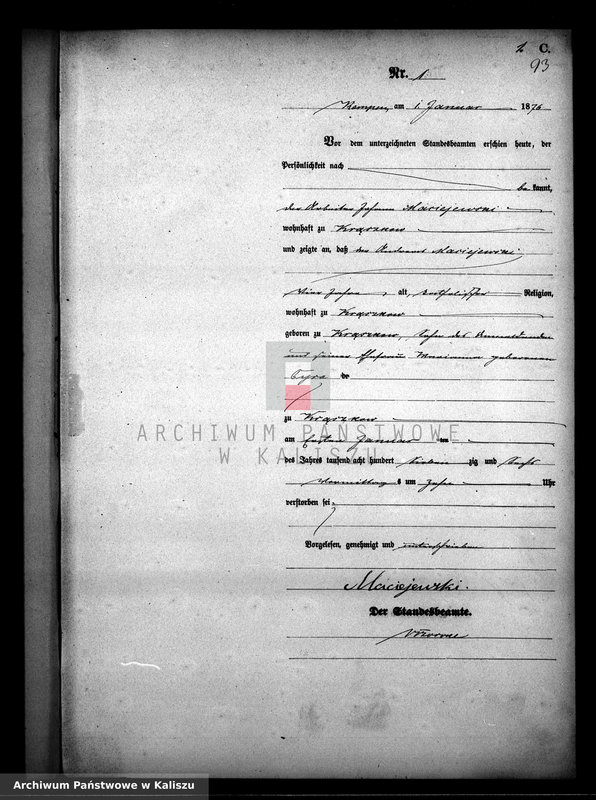 C.
93
Nr. 1
Kempen, am 1. Januar 1876
Vor dem unterzeichneten Standesbeamten erschien heute, der
Persönlichkeit nach
be kannt,
der Arbeiter Johann Maciejewski
wohnhaft zu
und zeigte an, daß der Maciejewski
vier Jahre, alt, katholischer Religion,
wohnhaft zu
geboren zu Sohn des
und seiner Ehefrau Marianna geborenen
zu
am ersten Januar
des Jahres tausend acht hundert sieben zig und sechs
Vormittag s um Uhr
verstorben sei.
Vorgelesen, genehmigt und unterschrieben
Maciejewski.
Der Standesbeamte.
ARCHIWUM PAŃSTWOWE
W KALISZU
Archiwum Państwowe w Kaliszu